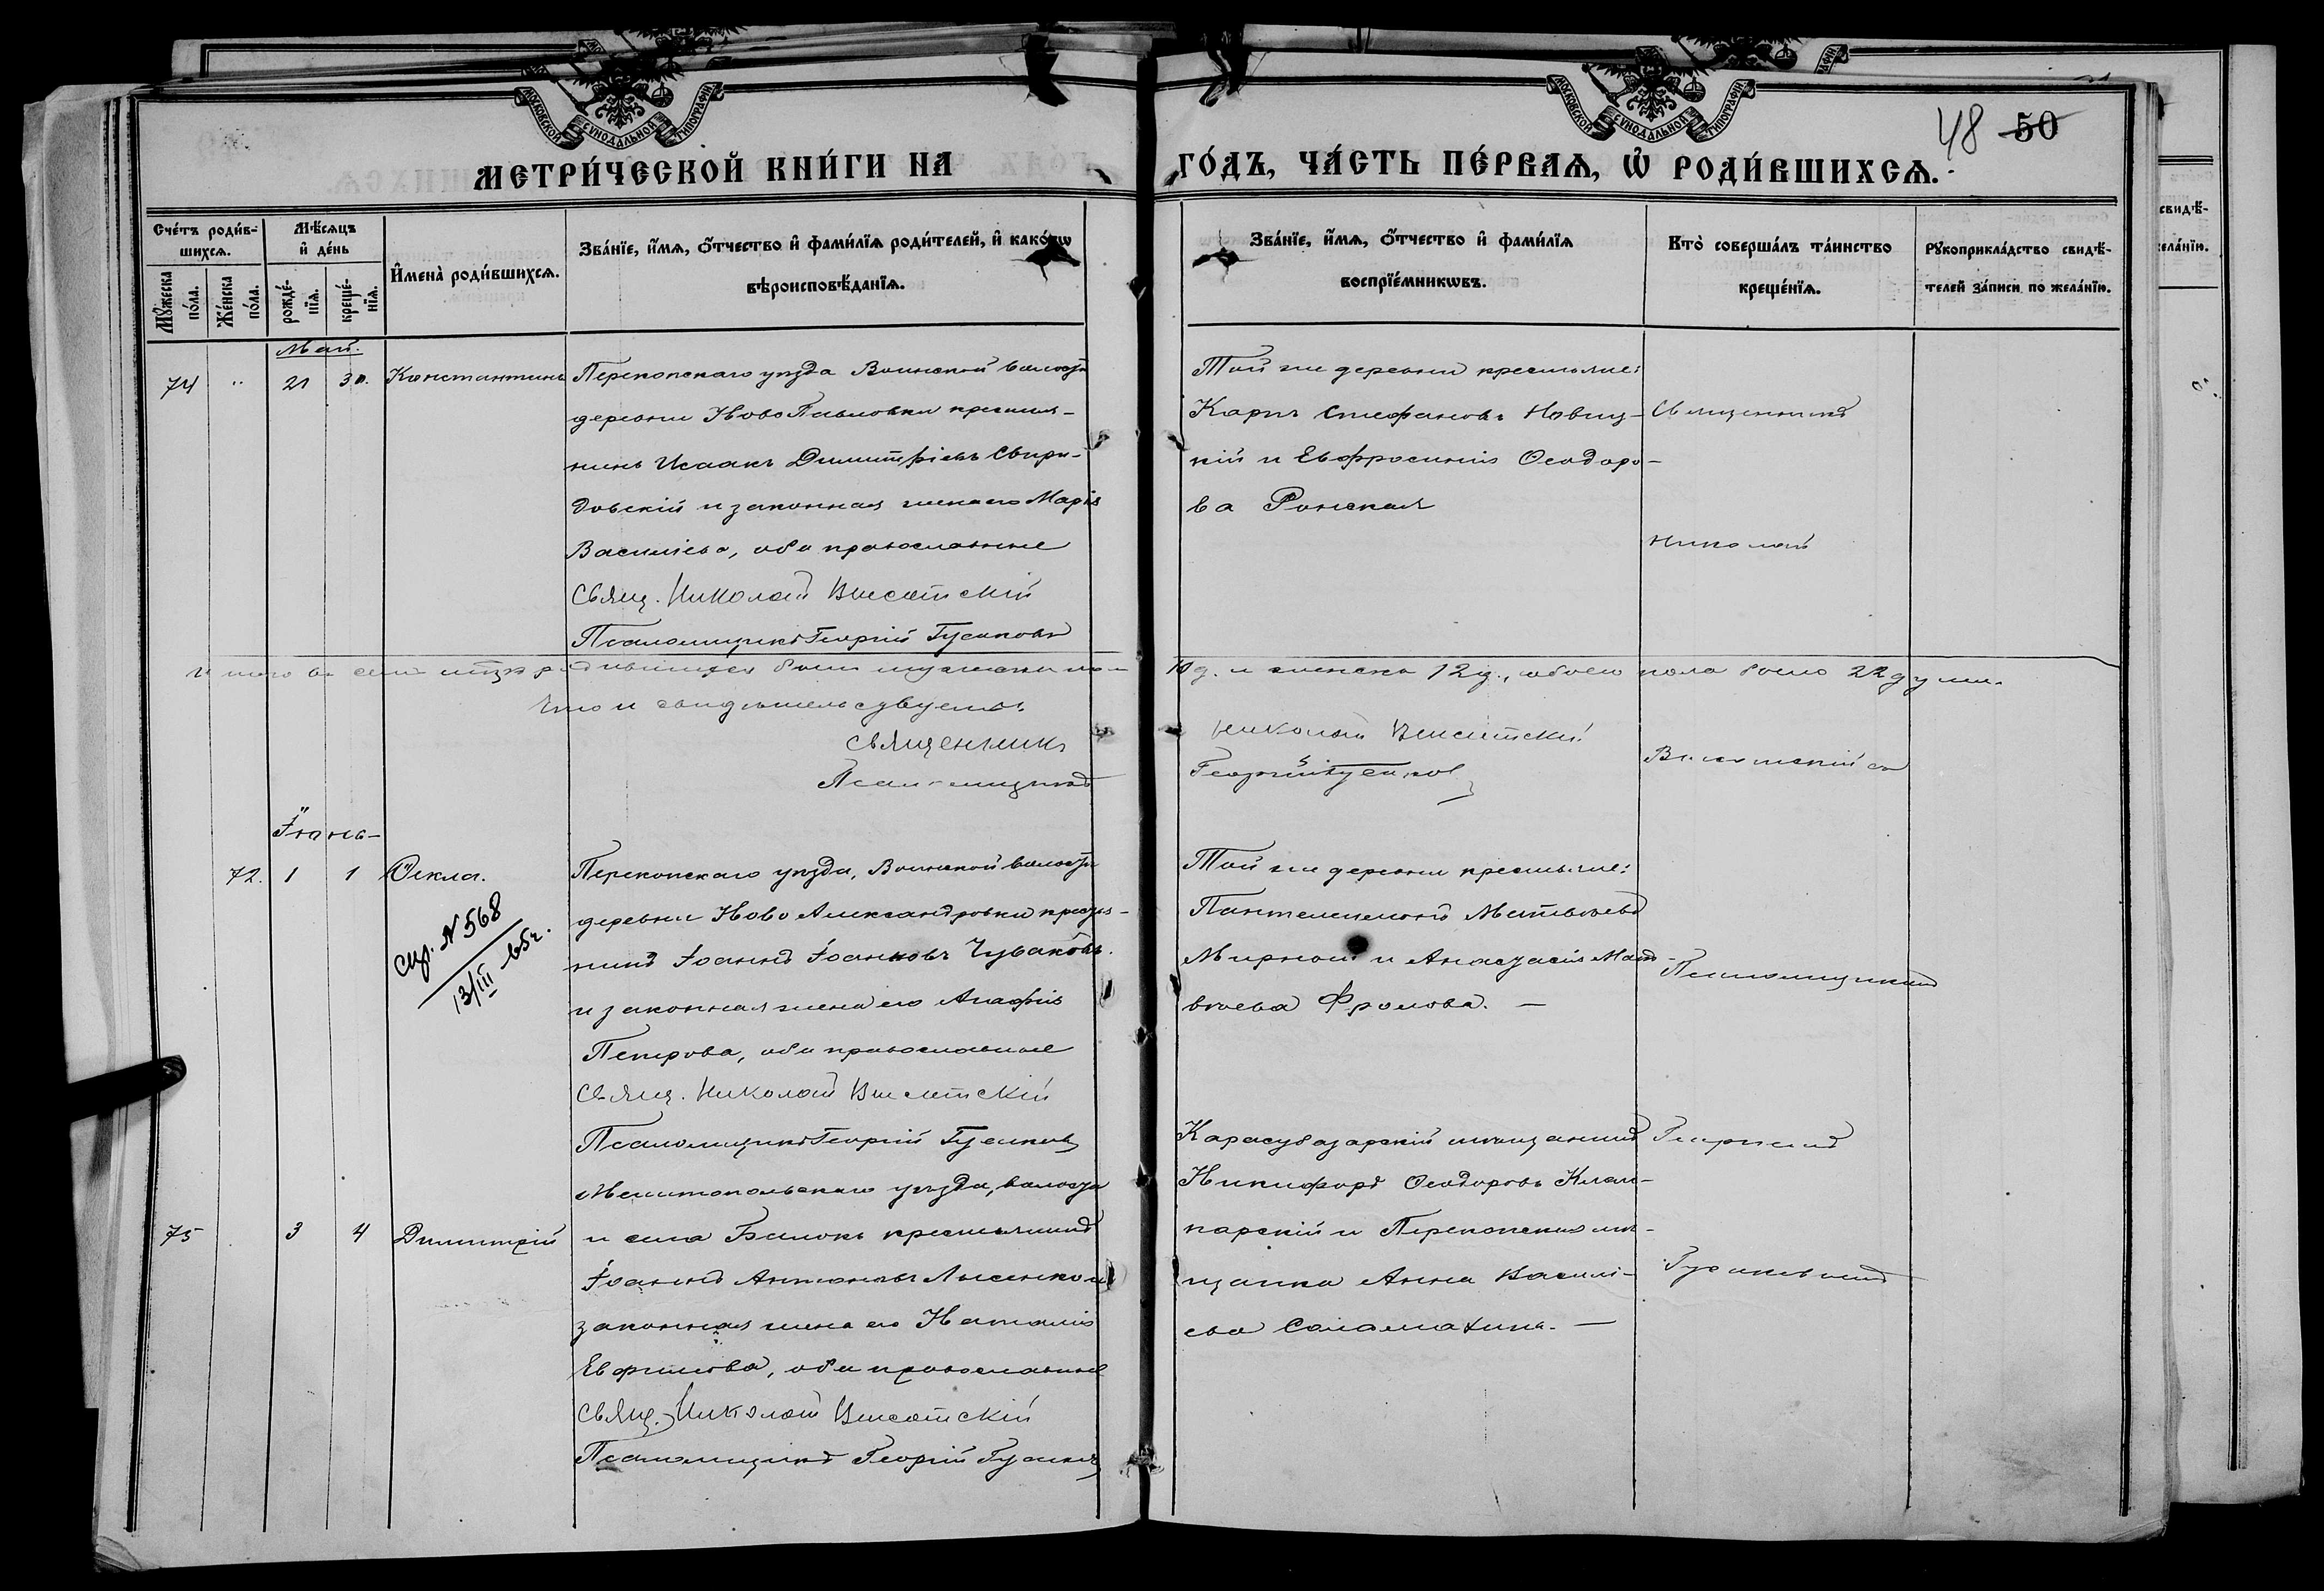 МОСКОВСКОЙ СУНОДАЛЬНОЙ ТИПОГРАФІИ
МОСКОВСКОЙ СУНОДАЛЬНОЙ ТИПОГРАФІИ
48 50
МЕТРИ́ЧЕСКОЙ КНИ́ГИ НА ГО́ДЪ, ЧА́СТЬ ПЕ́РВАѦ, Ѿ РОДИ́ВШИХСѦ.
Сче́тъ роди́в-
шихсѧ.
Мꙋ́жеска по́ла.
Же́нска по́ла.
Мѣ́сѧцъ
и҆ де́нь
рожде́-
нїѧ.
креще́-
нїѧ.
И҆мена̀ роди́вшихсѧ.
Зва́нїе, и҆́мѧ, ѻ҆́тчество и҆ фами́лїѧ роди́телей, и҆ како́гѡ
вѣроисповѣ́данїѧ.
Зва́нїе, и҆́мѧ, ѻ҆́тчество и҆ фами́лїѧ
воспрїе́мникѡвъ.
Кто̀ соверша́лъ та́инство
креще́нїѧ.
Рꙋкоприкла́дство свидѣ́-
телей за́писи по жела́нїю.
Май.
74 " 21 30. Константинъ
Перекопскаго уѣзда Воинской волости
деревни НовоПавловки крестья-
нинъ Исаакъ Димитріевъ Свири-
довскій и законная жена его Марія
Василіева, оба православные
Свящ. Николай
Псаломщикъ Георгій Гусаковъ
Той же деревни крестьяне:
Карпъ Стефановъ Новиц-
кій и Евфросинія Ѳеодоро-
ва Ронская
Священникъ
Николай
Итого въ семъ мѣсяцѣ родившихся было мужеска пола 10 д. и женска 12 д., обоего пола было 22 души.
Что и свидѣтельствуемъ
Священникъ Николай
Псаломщикъ Георгій Гусаковъ
Іюнь-
72. 1 1 Ѳекла.
Спр. N 568
13/III 65г.
Перекопскаго уѣзда, Воинской волости
деревни Ново Александровки крестья-
нинъ Іоаннъ Іоанновъ Чуваковъ.
и законная жена его Агафія
Петрова, оба православные
Свящ. Николай
Псаломщикъ Георгій Гусаковъ
Той же деревни крестьяне:
Пантелеимонъ Матвѣевъ
Мирной и Анастасія Мат-
вѣева Фролова. —
Псаломщикомъ
Георгіемъ
Гусаковымъ
75 3 4 Димитрій
Мелитопольскаго уѣзда, волости
и села крестьянинъ
Іоаннъ Антоновъ Лысенко и
законная жена его Наталія
Евфимова, оба православные
Свящ. Николай
Псаломщикъ Георгій Гусаковъ
Карасубазарскій мѣщанинъ
Никифоръ Ѳеодоровъ
и Перекопская мѣ-
щанка Анна Василі-
ева Саламахина. —